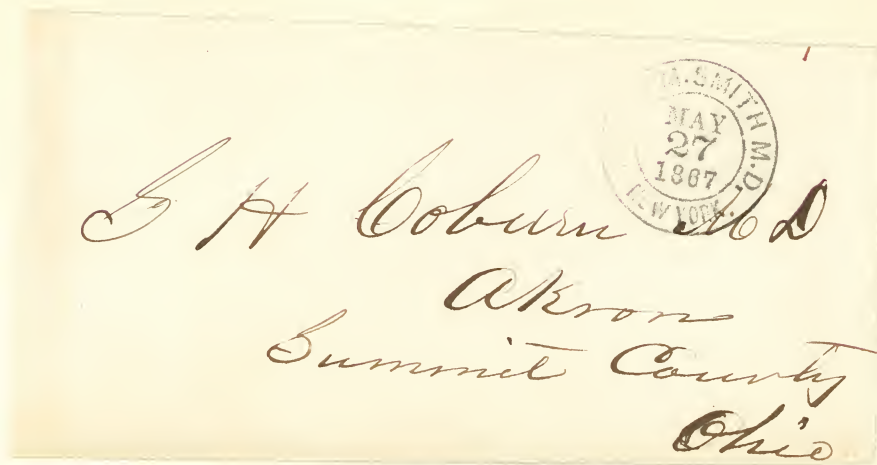 M. SMITH M.D.
MAY
27
1867
NEW YORK.
S H Coburn M D
Akron
Summit County
Ohio